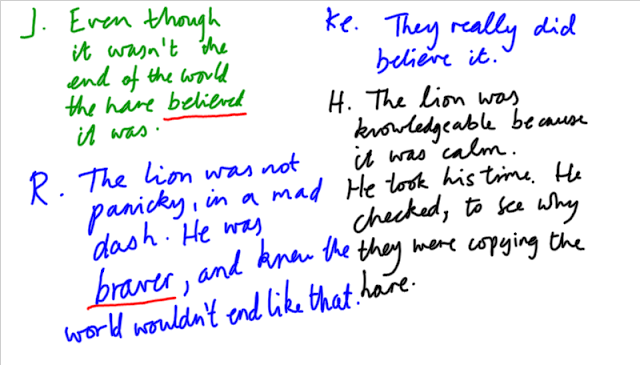 J. Even though
it wasn't the
end of the world
the hare believed
it was.
R. The lion was not
panicky, in a mad
dash. He was
braver, and knew the
world wouldn't end like that.
Ke. They really did
believe it.
H. The lion was
knowledgeable because
it was calm.
He took his time. He
checked, to see why
they were copying the
hare.